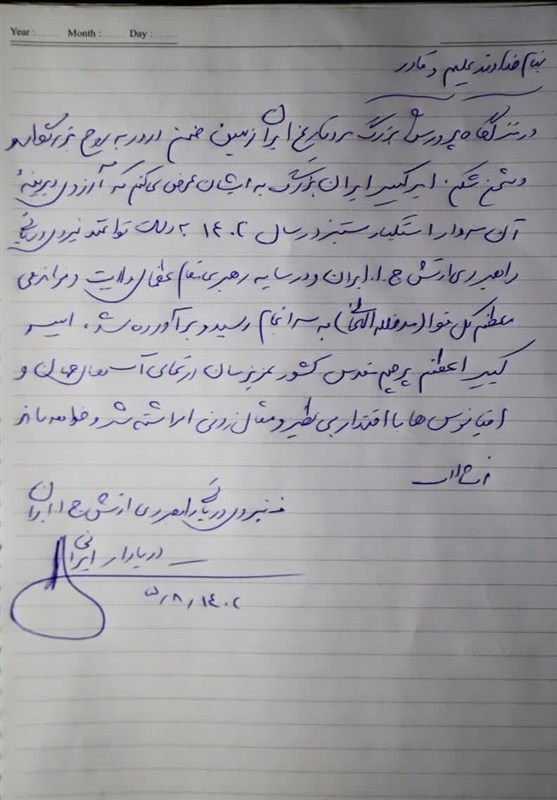 Year : Month : Day :
بنام خداوند علیم و قادر
در نزدگاه پرورش بزرگ مرد تاریخ ایران زمین ضمن درود به روح بزرگوار و
دشمن شکن امیرکبیر ایران بزرگ به ایشان عرض میکنم که آرزوی دیرینهٔ
آن سردار استکبار ستیز در سال ۱۴۰۲ به دست توانمند نیروی دریایی
راهبردی ارتش ج.ا.ایران و در سایه رهبری مقام عظمای ولایت و فرماندهی
معظم کل قوا (مدظله العالی) به سرانجام رسید و برآورده شد، امیر
کبیر اعظم پرچم مقدس کشور عزیزمان در تمامی آبهای جهان و
اقیانوس ها با اقتدار بی نظیر و مثال زدنی افراشته شد و خواهد ماند
انشاءالله
ف نیروی دریایی راهبردی ارتش ج.ا.ایران
دریادار ایرانی
۵/۸/۱۴۰۲